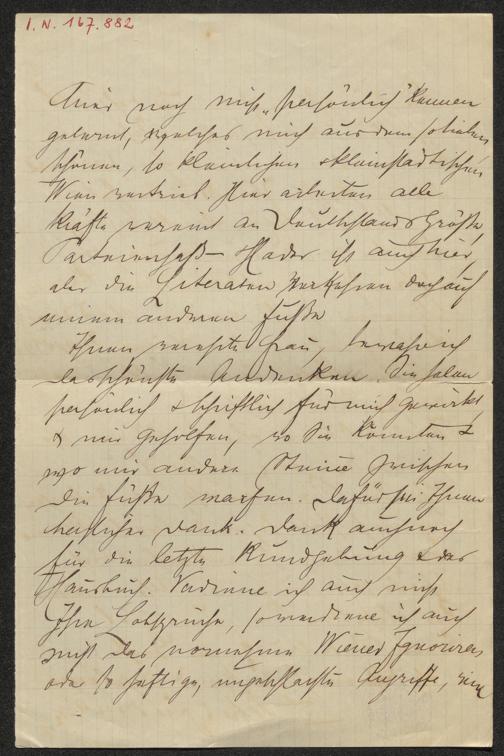 I. N. 167.882
hier noch nicht „persönlich“ kennen
gelernt, welches mich aus dem so lieben
schönen, so kleinlichen & kleinstädtischen
Wien vertrieb. Hier arbeiten alle
Kräfte vereint an Deutschlands Größe,
Parteienhaß – Hader ist auch hier,
aber die Literaten verkehren doch auf
einem anderen Fuße
Ihnen, verehrte Frau, bewahre ich
das schönste Andenken. Sie haben
persönlich & schriftlich für mich gewirkt
& mir geholfen, wo Sie konnten &
wo mir andere Steine zwischen
die Füße warfen. Dafür sei Ihnen
herzlicher Dank. Dank auch noch
für die letzte Kundgebung & das
Hausbuch. Verdiene ich auch nicht
Ihre Lobsprüche, so verdiene ich auch
nicht das vornehme Wiener Ignoriren
oder so heftige, ungeschlachte Angriffe, wie